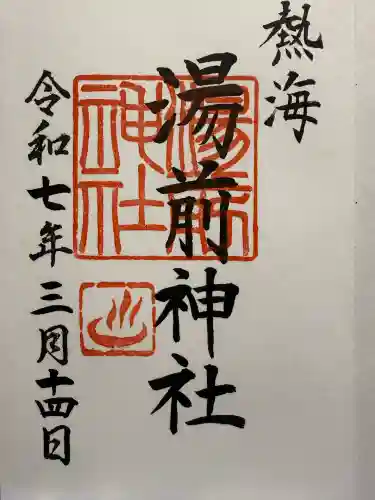 熱海
湯前神社
湯前
神社
令和七年三月十四日